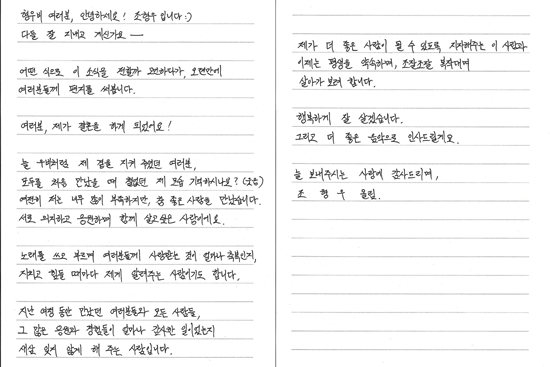 형우비 여러분, 안녕하세요! 조형우 입니다 :)
다들 잘 지내고 계신가요 —
어떤 식으로 이 소식을 전할까 고민하다가, 오랜만에
여러분들께 편지를 써봅니다.
여러분, 제가 결혼을 하게 되었어요!
늘 우비처럼 제 곁을 지켜 주었던 여러분,
모두들 처음 만났을 때 철없던 제 모습 기억하시나요? (웃음)
여전히 저는 너무 많이 부족하지만, 참 좋은 사람을 만났습니다.
서로 의지하고 응원하며 함께 살고싶은 사람이에요.
노래를 쓰고 부르며 여러분들께 사랑받는 것이 얼마나 축복인지,
지치고 힘들 때마다 제게 알려주는 사람이기도 합니다.
지난 여정 동안 만났던 여러분들과 모든 사람들,
그 많은 응원과 경험들이 얼마나 감사한 일이었는지
새삼 잊지 않게 해 주는 사람입니다.
제가 더 좋은 사람이 될 수 있도록 지지해주는 이 사람과
이제는 평생을 약속하며, 조잘조잘 복작대며
살아가 보려 합니다.
행복하게 잘 살겠습니다.
그리고 더 좋은 음악으로 인사드릴게요.
늘 보내주시는 사랑에 감사드리며,
조 형 우 올림.